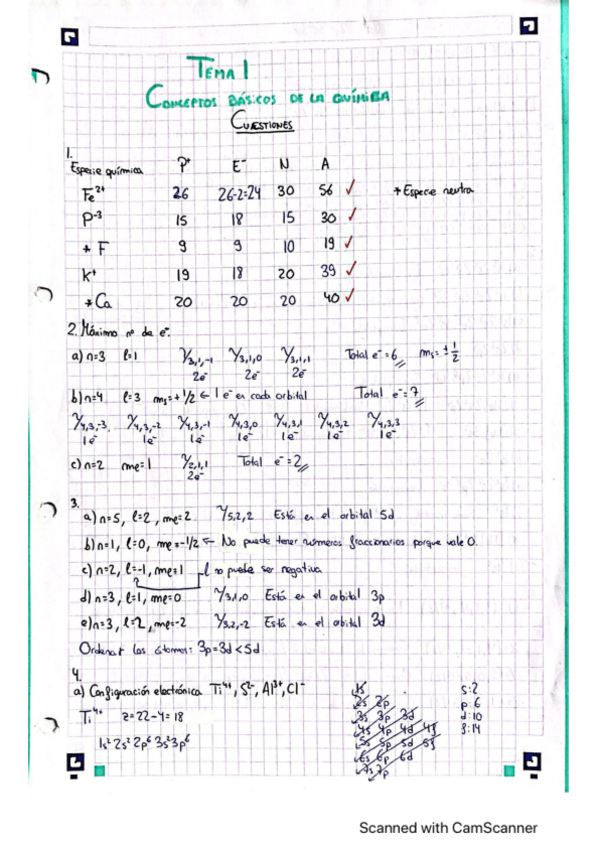 TEMA 1
CONCEPTOS BÁSICOS DE LA QUÍMICA
CUESTIONES
1.
Especie química P+ E- N A
Fe2+ 26 26-2=24 30 56 ✓ * Especie neutra
P-3 15 18 15 30 ✓
* F 9 9 10 19 ✓
K+ 19 18 20 39 ✓
* Ca 20 20 20 40 ✓
2. Máximo nº de e-.
a) n=3 l=1 Ψ3,1,-1 Ψ3,1,0 Ψ3,1,1 Total e-=6 ms=±1/2
2e- 2e- 2e-
b) n=4 l=3 ms=+1/2 ← 1 e- en cada orbital Total e-=7
Ψ4,3,-3 Ψ4,3,-2 Ψ4,3,-1 Ψ4,3,0 Ψ4,3,1 Ψ4,3,2 Ψ4,3,3
1e- 1e- 1e- 1e- 1e- 1e- 1e-
c) n=2 me=1 Ψ2,1,1 Total e-=2
2e-
3.
a) n=5, l=2, me=2 Ψ5,2,2 Está en el orbital 5d
b) n=1, l=0, me=-1/2 ← No puede tener números fraccionarios porque vale 0.
c) n=2, l=-1, me=1 l no puede ser negativa
d) n=3, l=1, me=0 Ψ3,1,0 Está en el orbital 3p
e) n=3, l=2, me=-2 Ψ3,2,-2 Está en el orbital 3d
Ordenar los átomos: 3p=3d<5d
4.
a) Configuración electrónica Ti4+, S2-, Al3+, Cl-
Ti4+ z=22-4=18
1s2 2s2 2p6 3s2 3p6
1s
2s 2p
3s 3p 3d
4s 4p 4d 4f
5s 5p 5d 5f
6s 6p 6d
7s 7p
s:2
p:6
d:10
f:14
Scanned with CamScanner